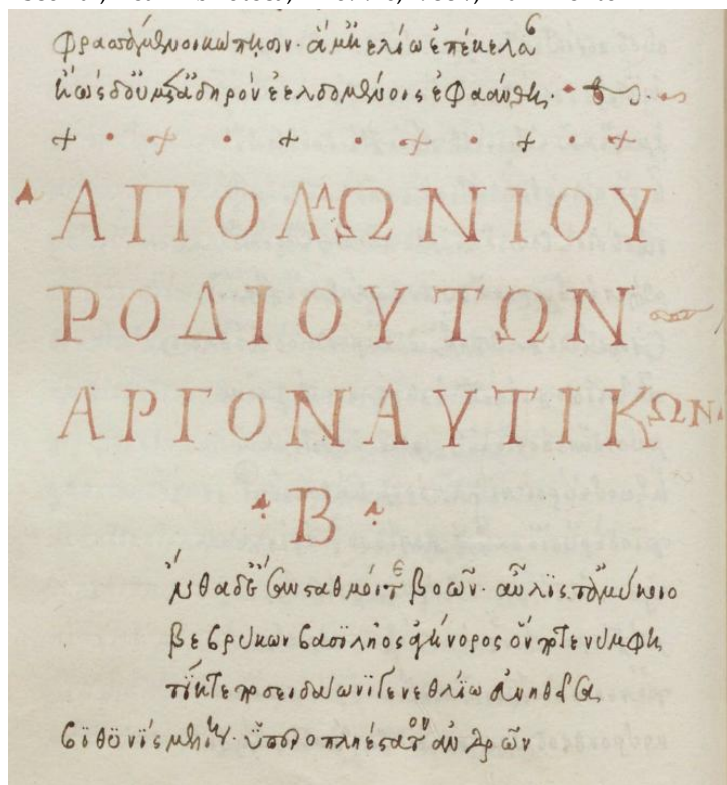 φρασσάμενοι κώπησιν· ἅμ' ἠελίω ἐπέκελσαν
δηρὸν ἐελδομένοις ἐφαάνθη·
ΑΠΟΛΛΩΝΙΟΥ
ΡΟΔΙΟΥ ΤΩΝ
ΑΡΓΟΝΑΥΤΙΚΩΝ
Β
ἔνθα δ' ἔσαν σταθμοί τε βοῶν· αὖλϊς τ' ἀμύκοιο
βεβρύκων βασϊλῆος ἀγήνορος ὅν ποτε νύμφη
τίκτε ποσειδάωνϊ γενεθλίω εὐνηθεῖσα
βϊθϋνὶς μελίη· ὑπεροπληέστατον ἀνδρῶν